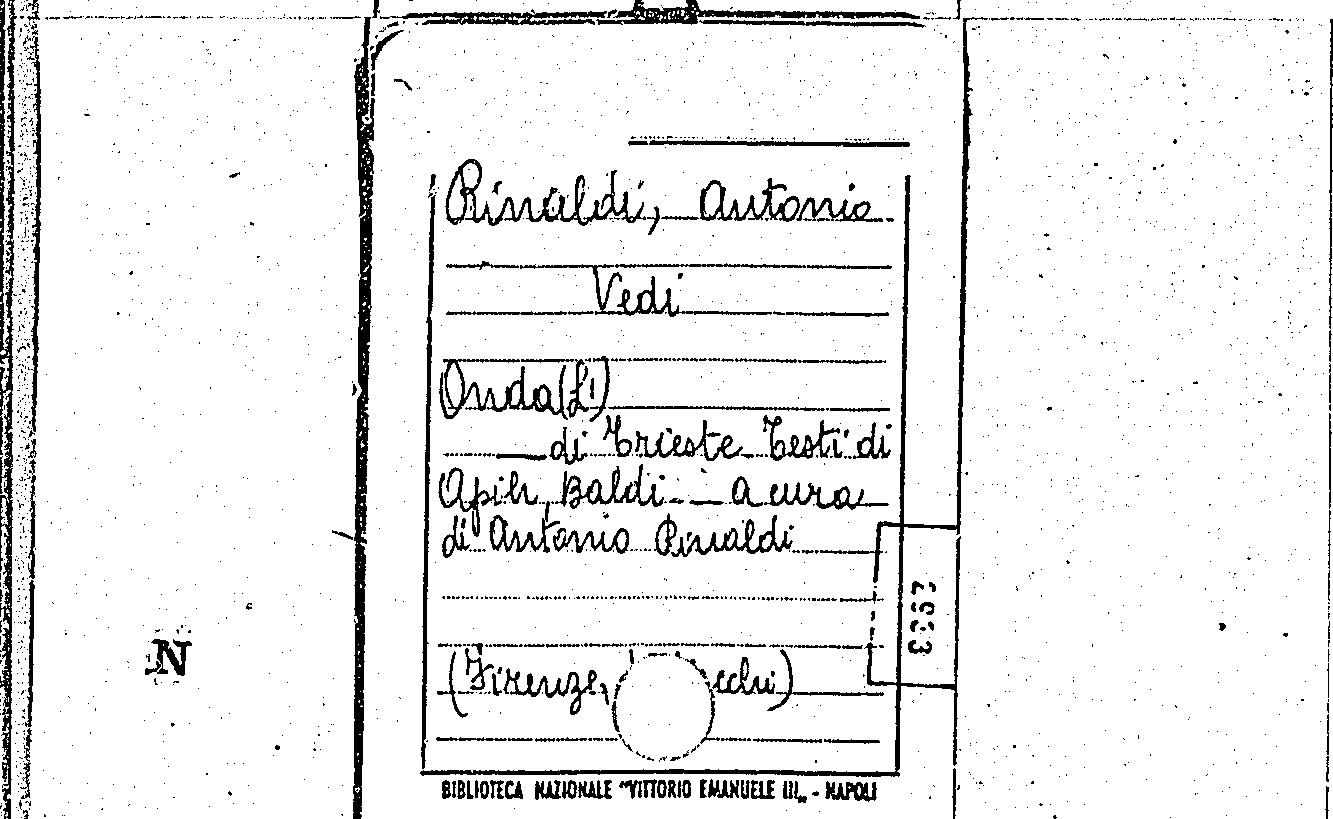 Rinaldi, Antonio
Vedi
Onda (L')
di Trieste Testi di
Apih, Baldi - a cura
di Antonio Rinaldi
(Firenze,
N
BIBLIOTECA NAZIONALE "VITTORIO EMANUELE III„ - NAPOLI